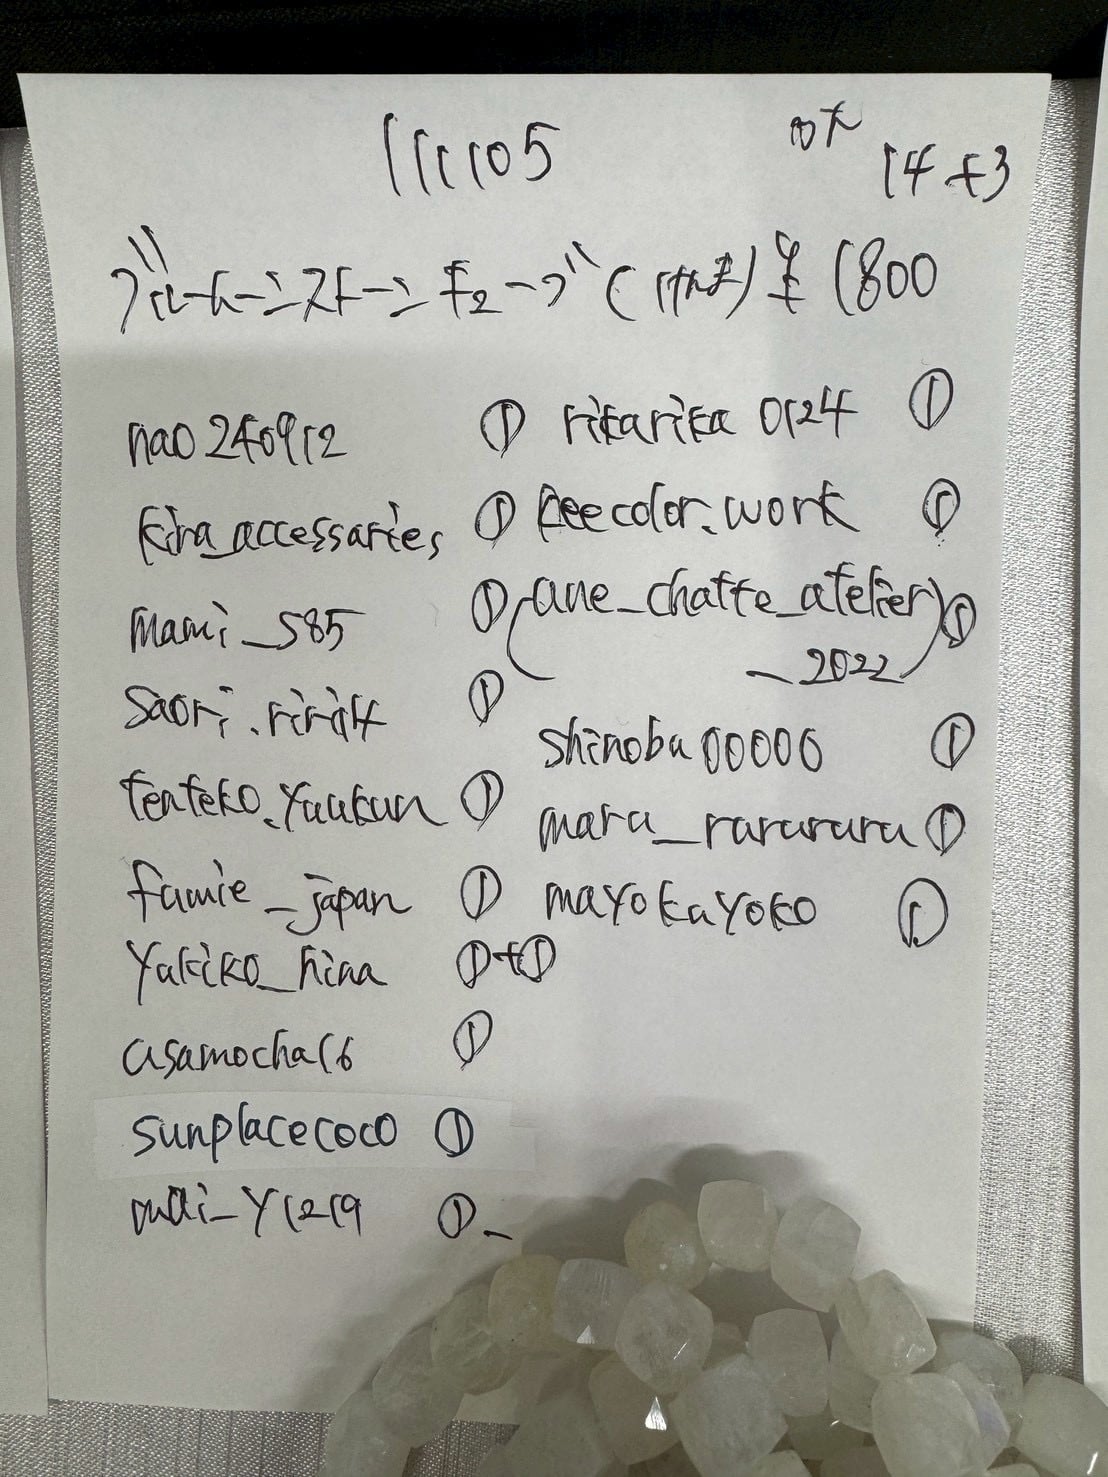 111105
14+3
ブルームーンストーンキューブ(1けd) ¥1800
nao240912 ①
kira_accessaries ①
mami_585 ①
saori.riri14 ①
tenteko.yuukun ①
fumie_japan ①
yukiko_hina ①+①
asamocha16 ①
sunplacecoco ①
mai_y1219 ①
rikarika0124 ①
keecolor.work ①
(ane_chatte_atelier ①
_2022)
shinobu00000 ①
maru_rurururu ①
mayokayoko ①